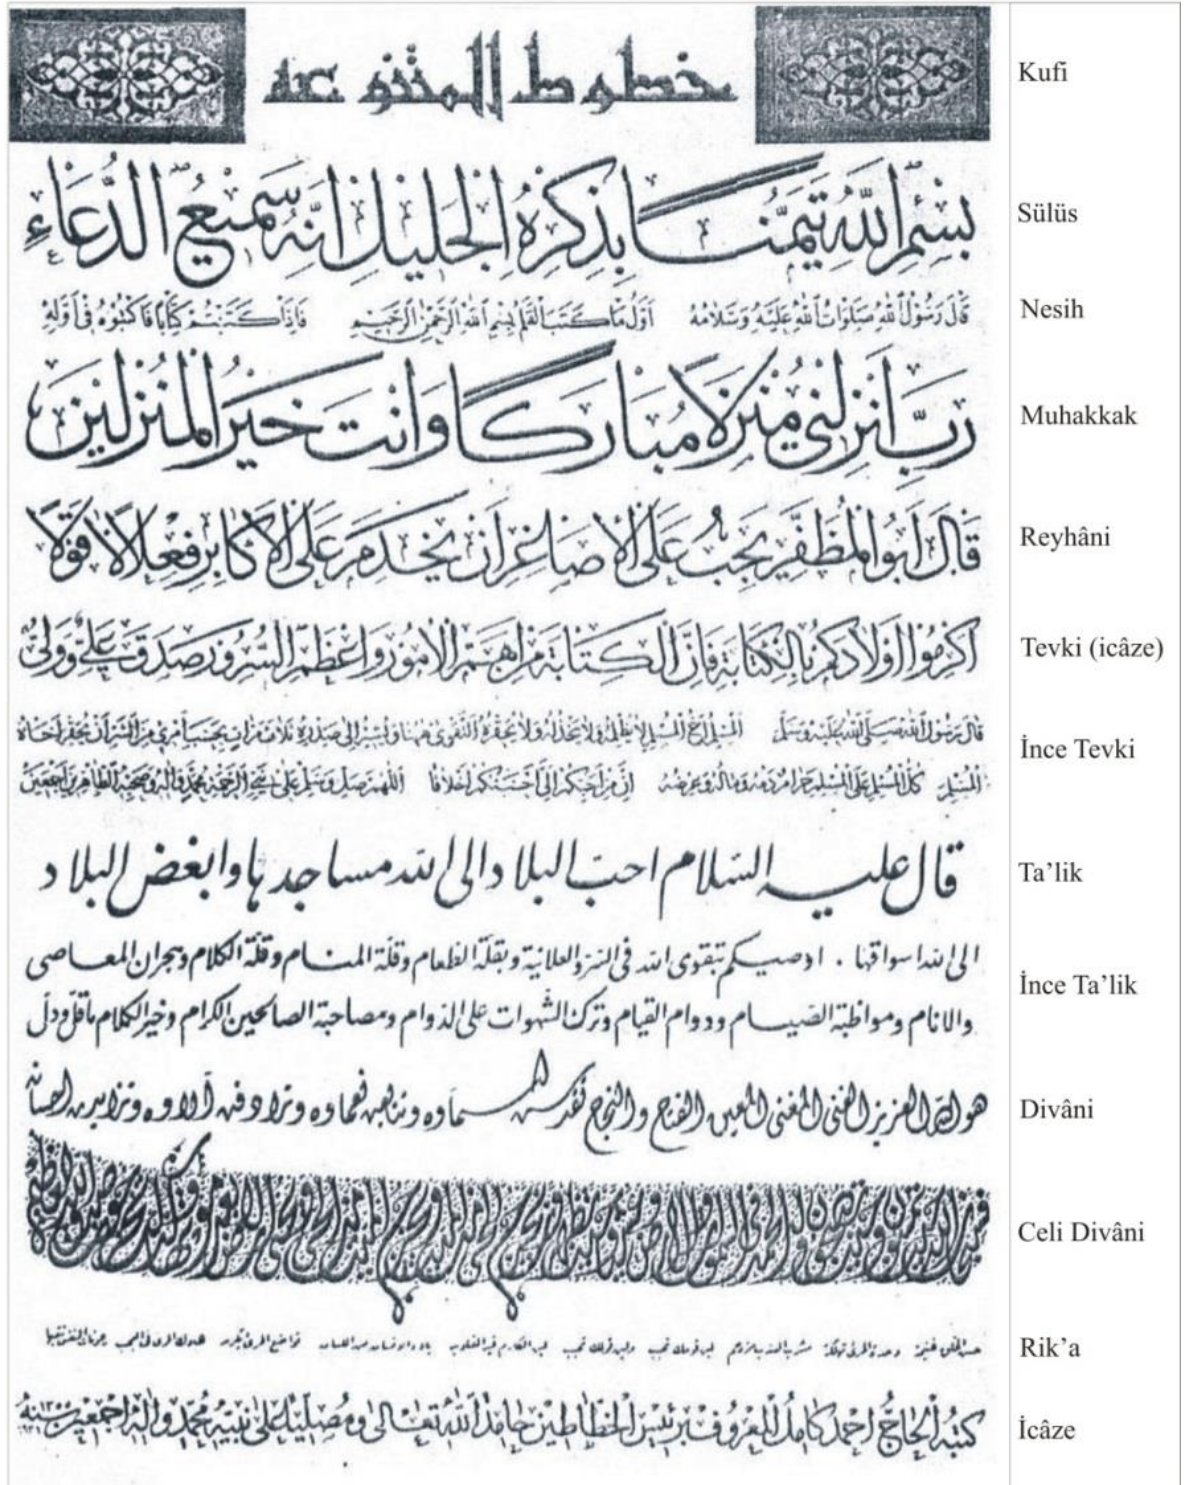 خطوط المتنوعه
Kufi
بِسْمِ اللّٰهِ تَيَمُّنًا بِذِكْرِهِ الْجَلِيلِ اِنَّهُ سَمِيعُ الدُّعَاءِ
Sülüs
قَالَ رَسُولُ اللّٰهِ صَلَوَاتُ اللّٰهِ عَلَيْهِ وَسَلَامُهُ اَوَّلُ مَا كَتَبَ الْقَلَمُ بِسْمِ اللّٰهِ الرَّحْمٰنِ الرَّحِيمِ فَاِذَا كَتَبْتُمْ كِتَابًا فَاكْتُبُوهُ فِى اَوَّلِهِ
Nesih
رَبِّ اَنْزِلْنِى مُنْزَلًا مُبَارَكًا وَاَنْتَ خَيْرُ الْمُنْزِلِينَ
Muhakkak
قَالَ اَبُو الْمُظَفَّرِ يَجِبُ عَلَى الْاَصَاغِرِ اَنْ يَخْدِمَ عَلَى الْاَكَابِرِ فِعْلًا لَا قَوْلًا
Reyhâni
اَكْرِمُوا اَوْلَادَكُمْ بِالْكِتَابَةِ فَاِنَّ الْكِتَابَةَ مِنْ اَهَمِّ الْاُمُورِ وَاَعْظَمِ السُّرُورِ صَدَقَ عَلِىٌّ وَلِىٌّ
Tevki (icâze)
قال رسول الله صلى الله عليه وسلم المسلم اخ المسلم لا يظلمه ولا يخذله ولا يحقره التقوى ههنا ويشير الى صدره ثلاث مرات بحسب امرئ من الشر ان يحقر اخاه
المسلم كل المسلم على المسلم حرام دمه وماله وعرضه ان من احبكم الى احسنكم اخلاقا اللهم صل وسلم على نبى الرحمة محمد وآله وصحبه الطاهرين اجمعين
İnce Tevki
قال عليه السلام احب البلاد الى الله مساجدها وابغض البلاد
Ta’lik
الى الله اسواقها . اوصيكم بتقوى الله فى السر والعلانية وبقلة الطعام وقلة المنام وقلة الكلام وهجران المعاصى
والانام ومواظبة الصيام ودوام القيام وترك الشهوات على الدوام ومصاحبة الصالحين الكرام وخير الكلام ما قل ودل
İnce Ta’lik
هو الله العزيز الغنى المغنى المعين الفتاح والنجاح تقدس اسماؤه وتتابع نعماؤه وترادف آلاؤه وتزايد احسانه
Divâni
Celi Divâni
Rik’a
كتبه الحاج احمد كامل المعروف برئيس الخطاطين حامدا لله تعالى ومصليا على نبيه محمد وآله اجمعين سنه
İcâze